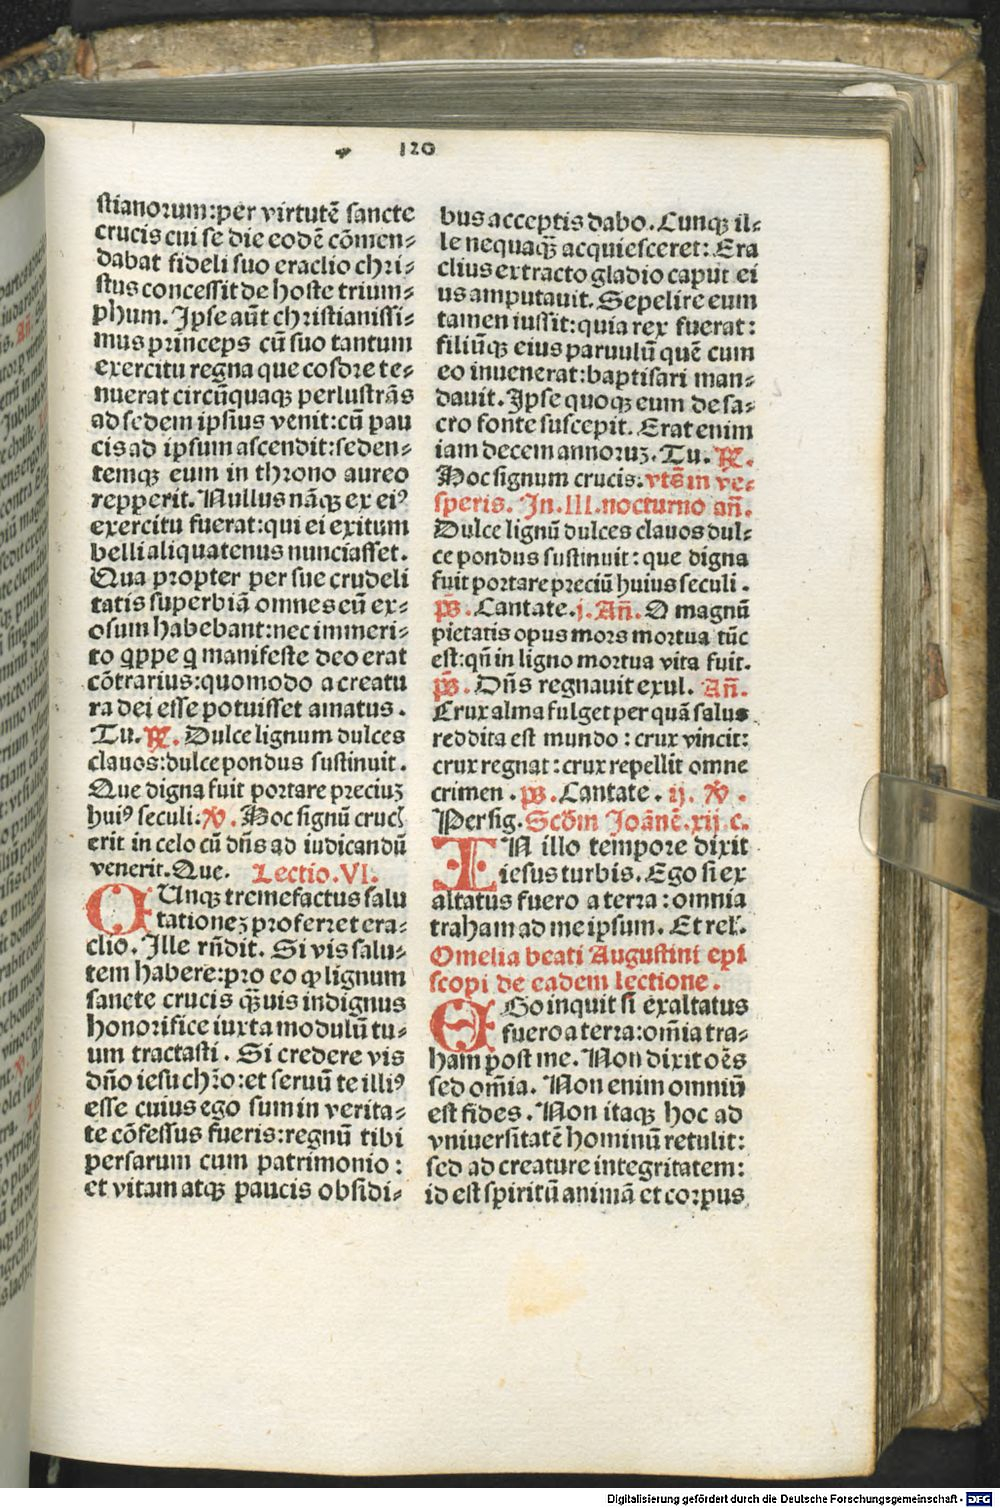 120
stianorum:per virtutē sancte
crucis cui se die eodē cōmen⸗
dabat fideli suo eraclio chri⸗
stus concessit de hoste trium⸗
phum. Ipse aūt christianissi⸗
mus princeps cū suo tantum
exercitu regna que cosdre te⸗
nuerat circūquaqꝫ perlustrās
ad sedem ipsius venit:cū pau
cis ad ipsum ascendit:seden⸗
temqꝫ eum in throno aureo
repperit. Nullus nāqꝫ ex eiꝰ
exercitu fuerat:qui ei exitum
belli aliquatenus nunciasset.
Qua propter per sue crudeli
tatis superbiā omnes eū ex⸗
osum habebant:nec immeri⸗
to qꝓpe q manifeste deo erat
cōtrarius:quomodo a creatu
ra dei esse potuisset amatus.
Tu. ℞. Dulce lignum dulces
clauos:dulce pondus sustinuit.
Que digna fuit portare preciuꝫ
huiꝰ seculi:℣. Hoc signū cruc
erit in celo cū dn̄s ad iudicandū
venerit. Que. Lectio. VI.
CUnqꝫ tremefactus salu
tationeꝫ proferret era⸗
clio. Ille rn̄dit. Si vis salu⸗
tem habere:pro eo ꝙ lignum
sancte crucis q̄uis indignus
honorifice iuxta modulū tu⸗
um tractasti. Si credere vis
dn̄o iesu chr̄o:et seruū te illiꝰ
esse cuius ego sum in verita⸗
te cōfessus fueris:regnū tibi
persarum cum patrimonio:
et vitam atqꝫ paucis obsidi⸗
bus acceptis dabo. Cunqꝫ il⸗
le nequaq̄ acquiesceret: Era
clius extracto gladio caput ei
us amputauit. Sepelire eum
tamen iussit:quia rex fuerat:
filiūqꝫ eius paruulū quē cum
eo inuenerat:baptisari man⸗
dauit. Ipse quoqꝫ eum de sa⸗
cro fonte suscepit. Erat enim
iam decem annoruꝫ. Tu. ℞.
Hoc signum crucis. vts̄ in ve⸗
speris. In. III. nocturno an̄.
Dulce lignū dulces clauos dul⸗
ce pondus sustinuit: que digna
fuit portare preciū huius seculi.
p̄s. Cantate. j. An̄. O magnū
pietatis opus mors mortua tūc
est:qn̄ in ligno mortua vita fuit.
p̄s. Dn̄s regnauit exul. An̄.
Crux alma fulget per quā salus
reddita est mundo: crux vincit:
crux regnat:crux repellit omne
crimen. p̄s. Cantate. ij. ℣.
Per sig. Scd̄m Joānē. xij. c.
IN illo tempore dixit
iesus turbis. Ego si ex
altatus fuero a terra: omnia
traham ad me ipsum. Et rel.
Omelia beati Augustini epi
scopi de eadem lectione.
EGo inquit si exaltatus
fuero a terra:om̄ia tra⸗
ham post me. Non dixit oēs
sed om̄ia. Non enim omniū
est fides. Non itaqꝫ hoc ad
vniuersitatē hominū retulit:
sed ad creature integritatem:
id est spiritū animā et corpus
Digitalisierung gefördert durch die Deutsche Forschungsgemeinschaft - DFG